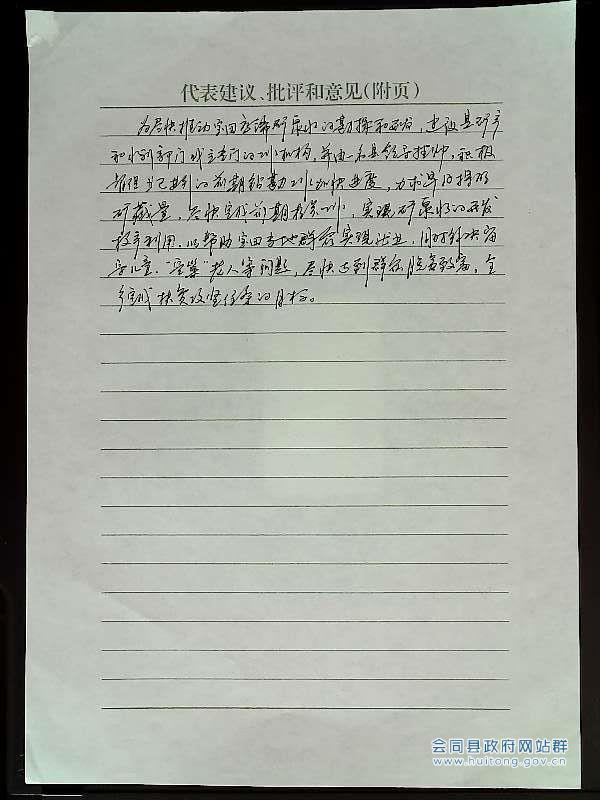 代表建议、批评和意见(附页)
为尽快推动宝田 矿泉水的勘探和开发，建议县矿产
和水利部门成立专门的 机构，并由一名县领导挂帅，积极
的前期钻勘 加快进度，力求早日探明
矿藏量，尽快完成前期 ，实现矿泉水的开发
投产利用，以帮助宝田当地群众实现就业，同时解决留
守儿童、“空巢”老人等问题，尽快达到群众脱贫致富，全
扶贫攻坚任务的目标。
会同县政府网站群
www.huitong.gov.cn